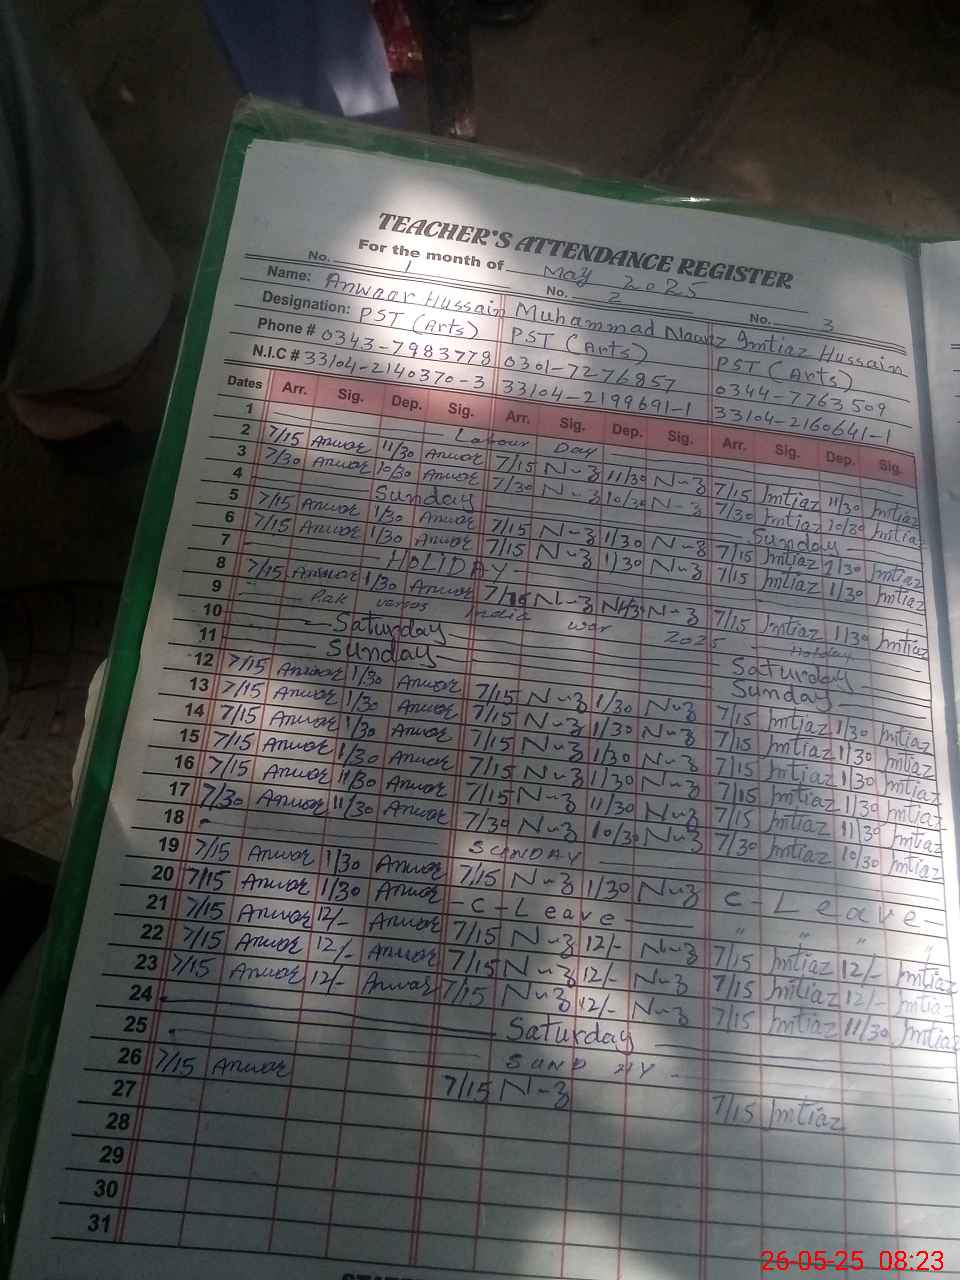 TEACHER'S ATTENDANCE REGISTER
For the month of May 2025
No. 1 No. 2 No. 3
Name: Anwaar Hussain Muhammad Nawaz Imtiaz Hussain
Designation: PST (Arts) PST (Arts) PST (Arts)
Phone # 0343-7983778 0301-7276857 0344-7763509
N.I.C # 33104-2140370-3 33104-2199691-1 33104-2160641-1
Dates Arr. Sig. Dep. Sig. Arr. Sig. Dep. Sig. Arr. Sig. Dep. Sig.
1 Labour Day
2 7/15 Anwar 11/30 Anwar 7/15 N-z 11/30 N-z 7/15 Imtiaz 11/30 Imtiaz
3 7/30 Anwar 10/30 Anwar 7/30 N-z 10/30 N-z 7/30 Imtiaz 10/30 Imtiaz
4 Sunday Sunday
5 7/15 Anwar 1/30 Anwar 7/15 N-z 1/30 N-z 7/15 Imtiaz 1/30 Imtiaz
6 7/15 Anwar 1/30 Anwar 7/15 N-z 1/30 N-z 7/15 Imtiaz 1/30 Imtiaz
7 HOLIDAY
8 7/15 Anwar 1/30 Anwar 7/15 N-z N-z 7/15 Imtiaz 1/30 Imtiaz
9 Pak versos India war 2025 Holiday
10 Saturday Saturday
11 Sunday Sunday
12 7/15 Anwar 1/30 Anwar 7/15 N-z 1/30 N-z 7/15 Imtiaz 1/30 Imtiaz
13 7/15 Anwar 1/30 Anwar 7/15 N-z 1/30 N-z 7/15 Imtiaz 1/30 Imtiaz
14 7/15 Anwar 1/30 Anwar 7/15 N-z 1/30 N-z 7/15 Imtiaz 1/30 Imtiaz
15 7/15 Anwar 1/30 Anwar 7/15 N-z 1/30 N-z 7/15 Imtiaz 1/30 Imtiaz
16 7/15 Anwar 11/30 Anwar 7/15 N-z 11/30 N-z 7/15 Imtiaz 11/30 Imtiaz
17 7/30 Anwar 11/30 Anwar 7/30 N-z 10/30 N-z 7/30 Imtiaz 10/30 Imtiaz
18 SUNDAY
19 7/15 Anwar 1/30 Anwar 7/15 N-z 1/30 N-z C-Leave
20 7/15 Anwar 1/30 Anwar -C-Leave- " " " "
21 7/15 Anwar 12/- Anwar 7/15 N-z 12/- N-z 7/15 Imtiaz 12/- Imtiaz
22 7/15 Anwar 12/- Anwar 7/15 N-z 12/- N-z 7/15 Imtiaz 12/- Imtiaz
23 7/15 Anwar 12/- Anwar 7/15 N-z 12/- N-z 7/15 Imtiaz 11/30 Imtiaz
24 Saturday
25 SUNDAY
26 7/15 Anwar 7/15 N-z 7/15 Imtiaz
27
28
29
30
31
26-05-25 08:23